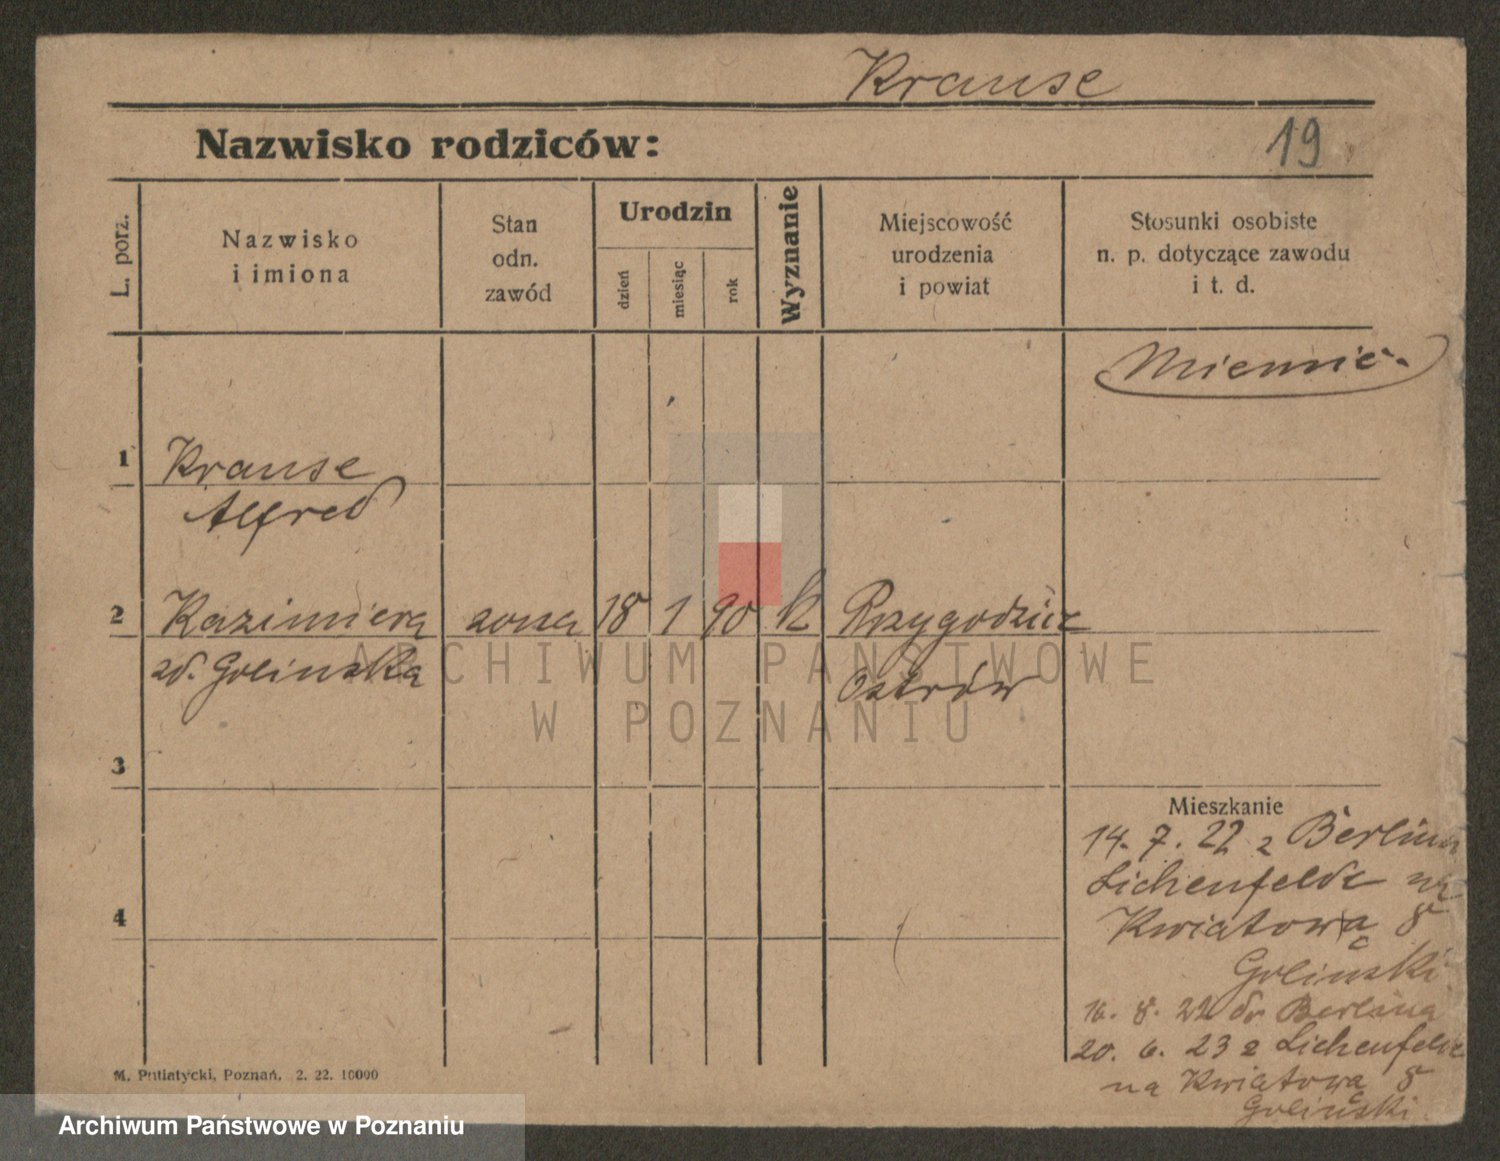 Krause
Nazwisko rodziców:
19
L. porz.
Nazwisko
i imiona
Stan
odn.
zawód
Urodzin
dzień
miesiąc
rok
Wyznanie
Miejscowość
urodzenia
i powiat
Stosunki osobiste
n. p. dotyczące zawodu
i t. d.
1 Krause
Alfred
2 Kazimiera żona 18 1 90 k Przygodzice
zd. Golinska Ostrów
3
4
Mieszkanie
14. 7. 22 z Berlina
Lichenfelde na
Kwiatową 8
Golinski
16. 8. 22 do Berlina
20. 6. 23 z Lichenfelde
na Kwiatową 8
Goliński.
M. Putiatycki, Poznań. 2. 22. 10000
ARCHIWUM PAŃSTWOWE
W POZNANIU
Archiwum Państwowe w Poznaniu